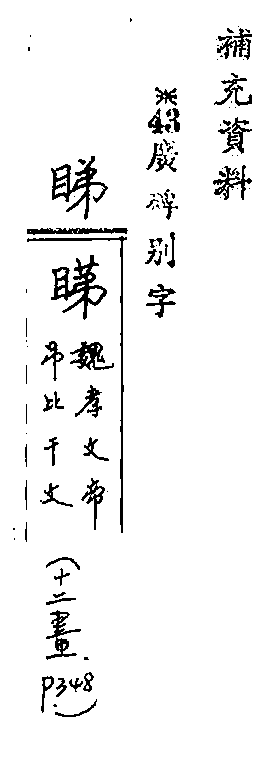 補充資料
※43廣碑別字
睇
魏孝文帝
吊比干文
(十二畫.P.348)